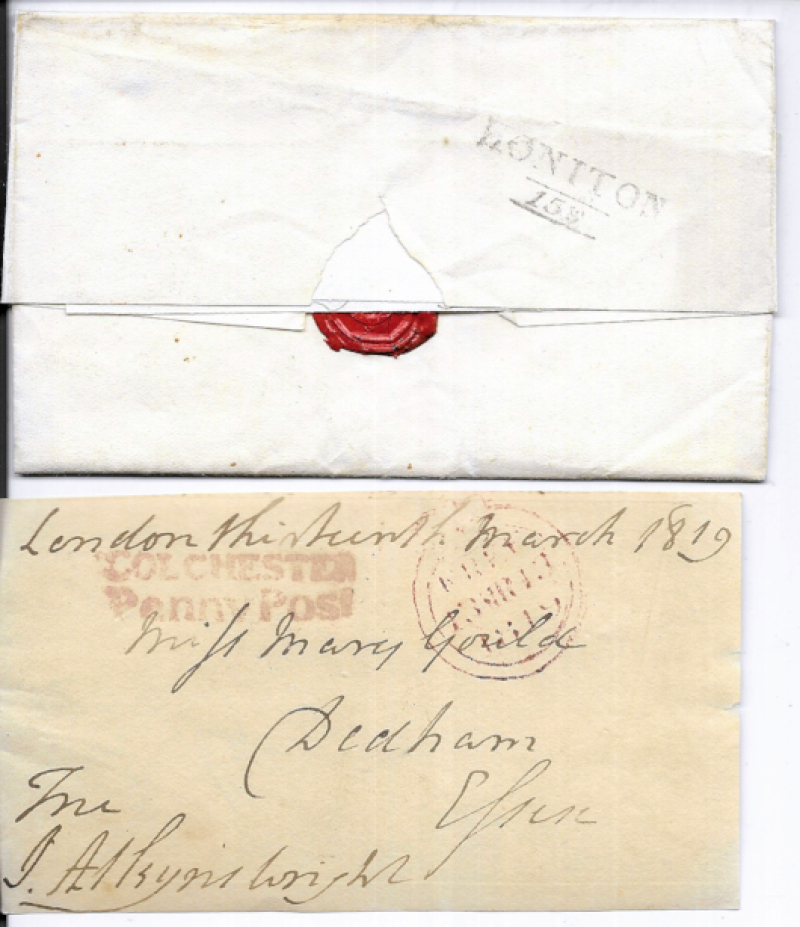 HONITON
158
London thirteenth March 1819
COLCHESTER
Penny Post
Miss Mary Gould
Dedham
Essex
Free
J. Atkyns Wright